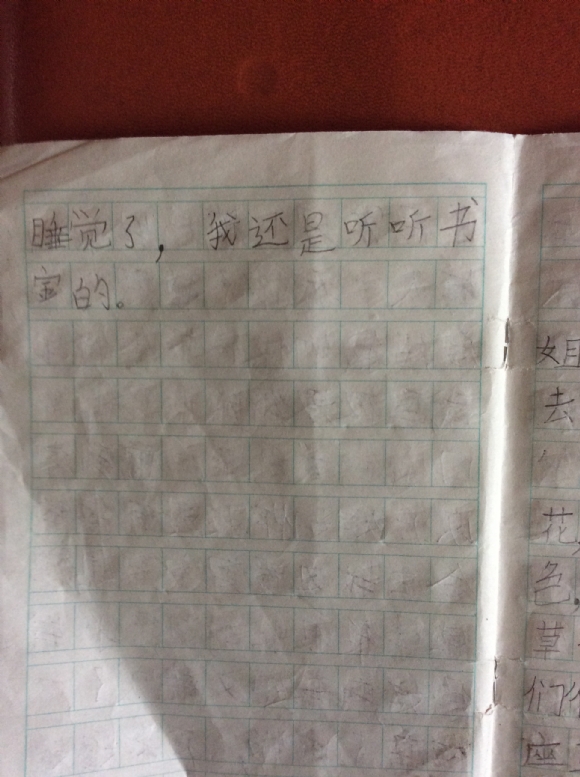 睡觉了，我还是听听书
宝的。
姐
去
花
色，
草
们
座